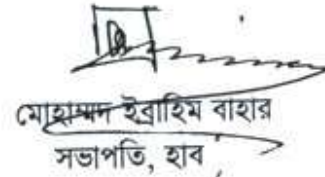 মোহাম্মদ ইব্রাহিম বাহার
সভাপতি, হাব